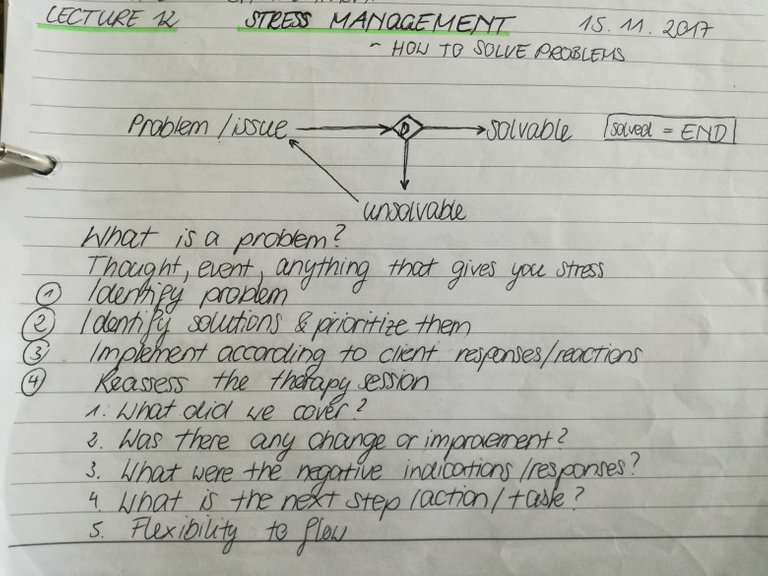 LECTURE 12 STRESS MANAGEMENT 15.11.2017
- HOW TO SOLVE PROBLEMS
Problem / issue D solvable solved = END
unsolvable
What is a problem?
Thought, event, anything that gives you stress
① Identify problem
② Identify solutions & prioritize them
③ Implement according to client responses/reactions
④ Reassess the therapy session
1. What did we cover?
2. Was there any change or improvement?
3. What were the negative indications/responses?
4. What is the next step/action/task?
5. Flexibility to flow